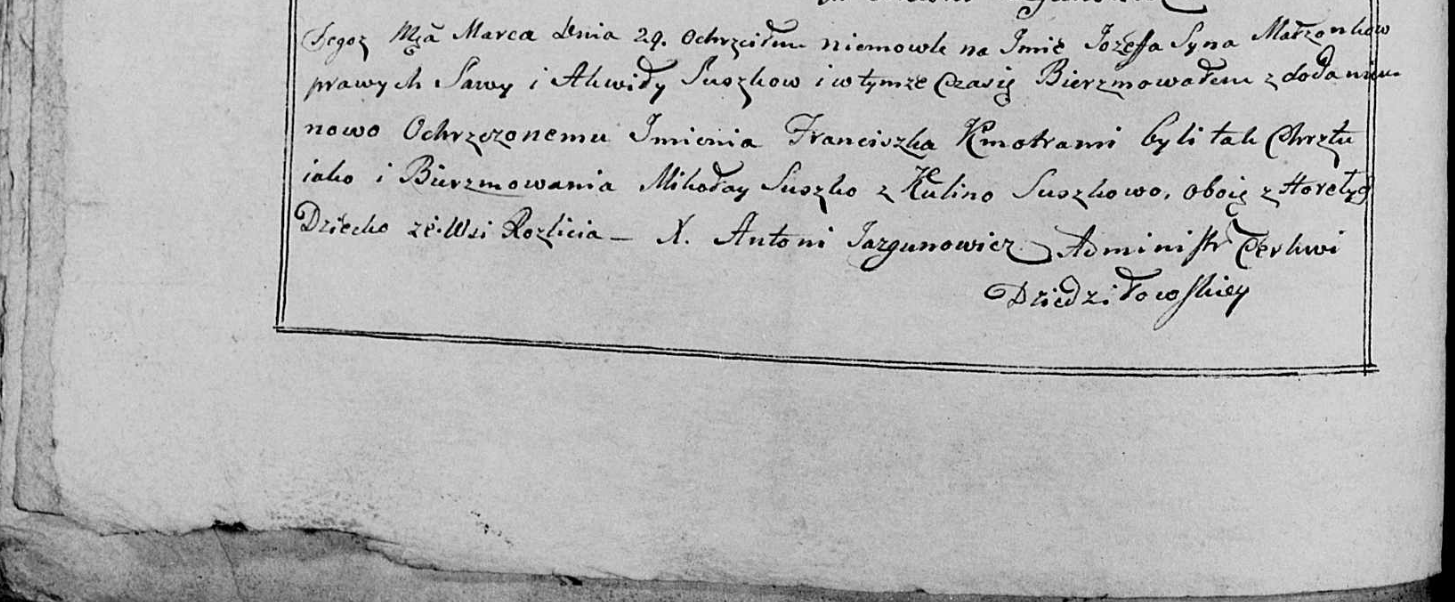 Tegoż Mca Marca Dnia 29. Ochrzciłem niemowle na Jmie Jozefa Syna Małzonkow
prawych Sawy i Akwiły Suszkow i w tymże Czasie Bierzmowałem z dodaniem
nowo Ochrzczonemu Jmienia Franciszka Kmotrami byli tak Chrztu
iako i Bierzmowania Mikołay Suszko z Kulino Suszkowo, oboie z Horełyc
Dziecko ze Wsi Rozlicia — X. Antoni Jazgunowicz Administr Cerkwi
Dziedziłowskiey